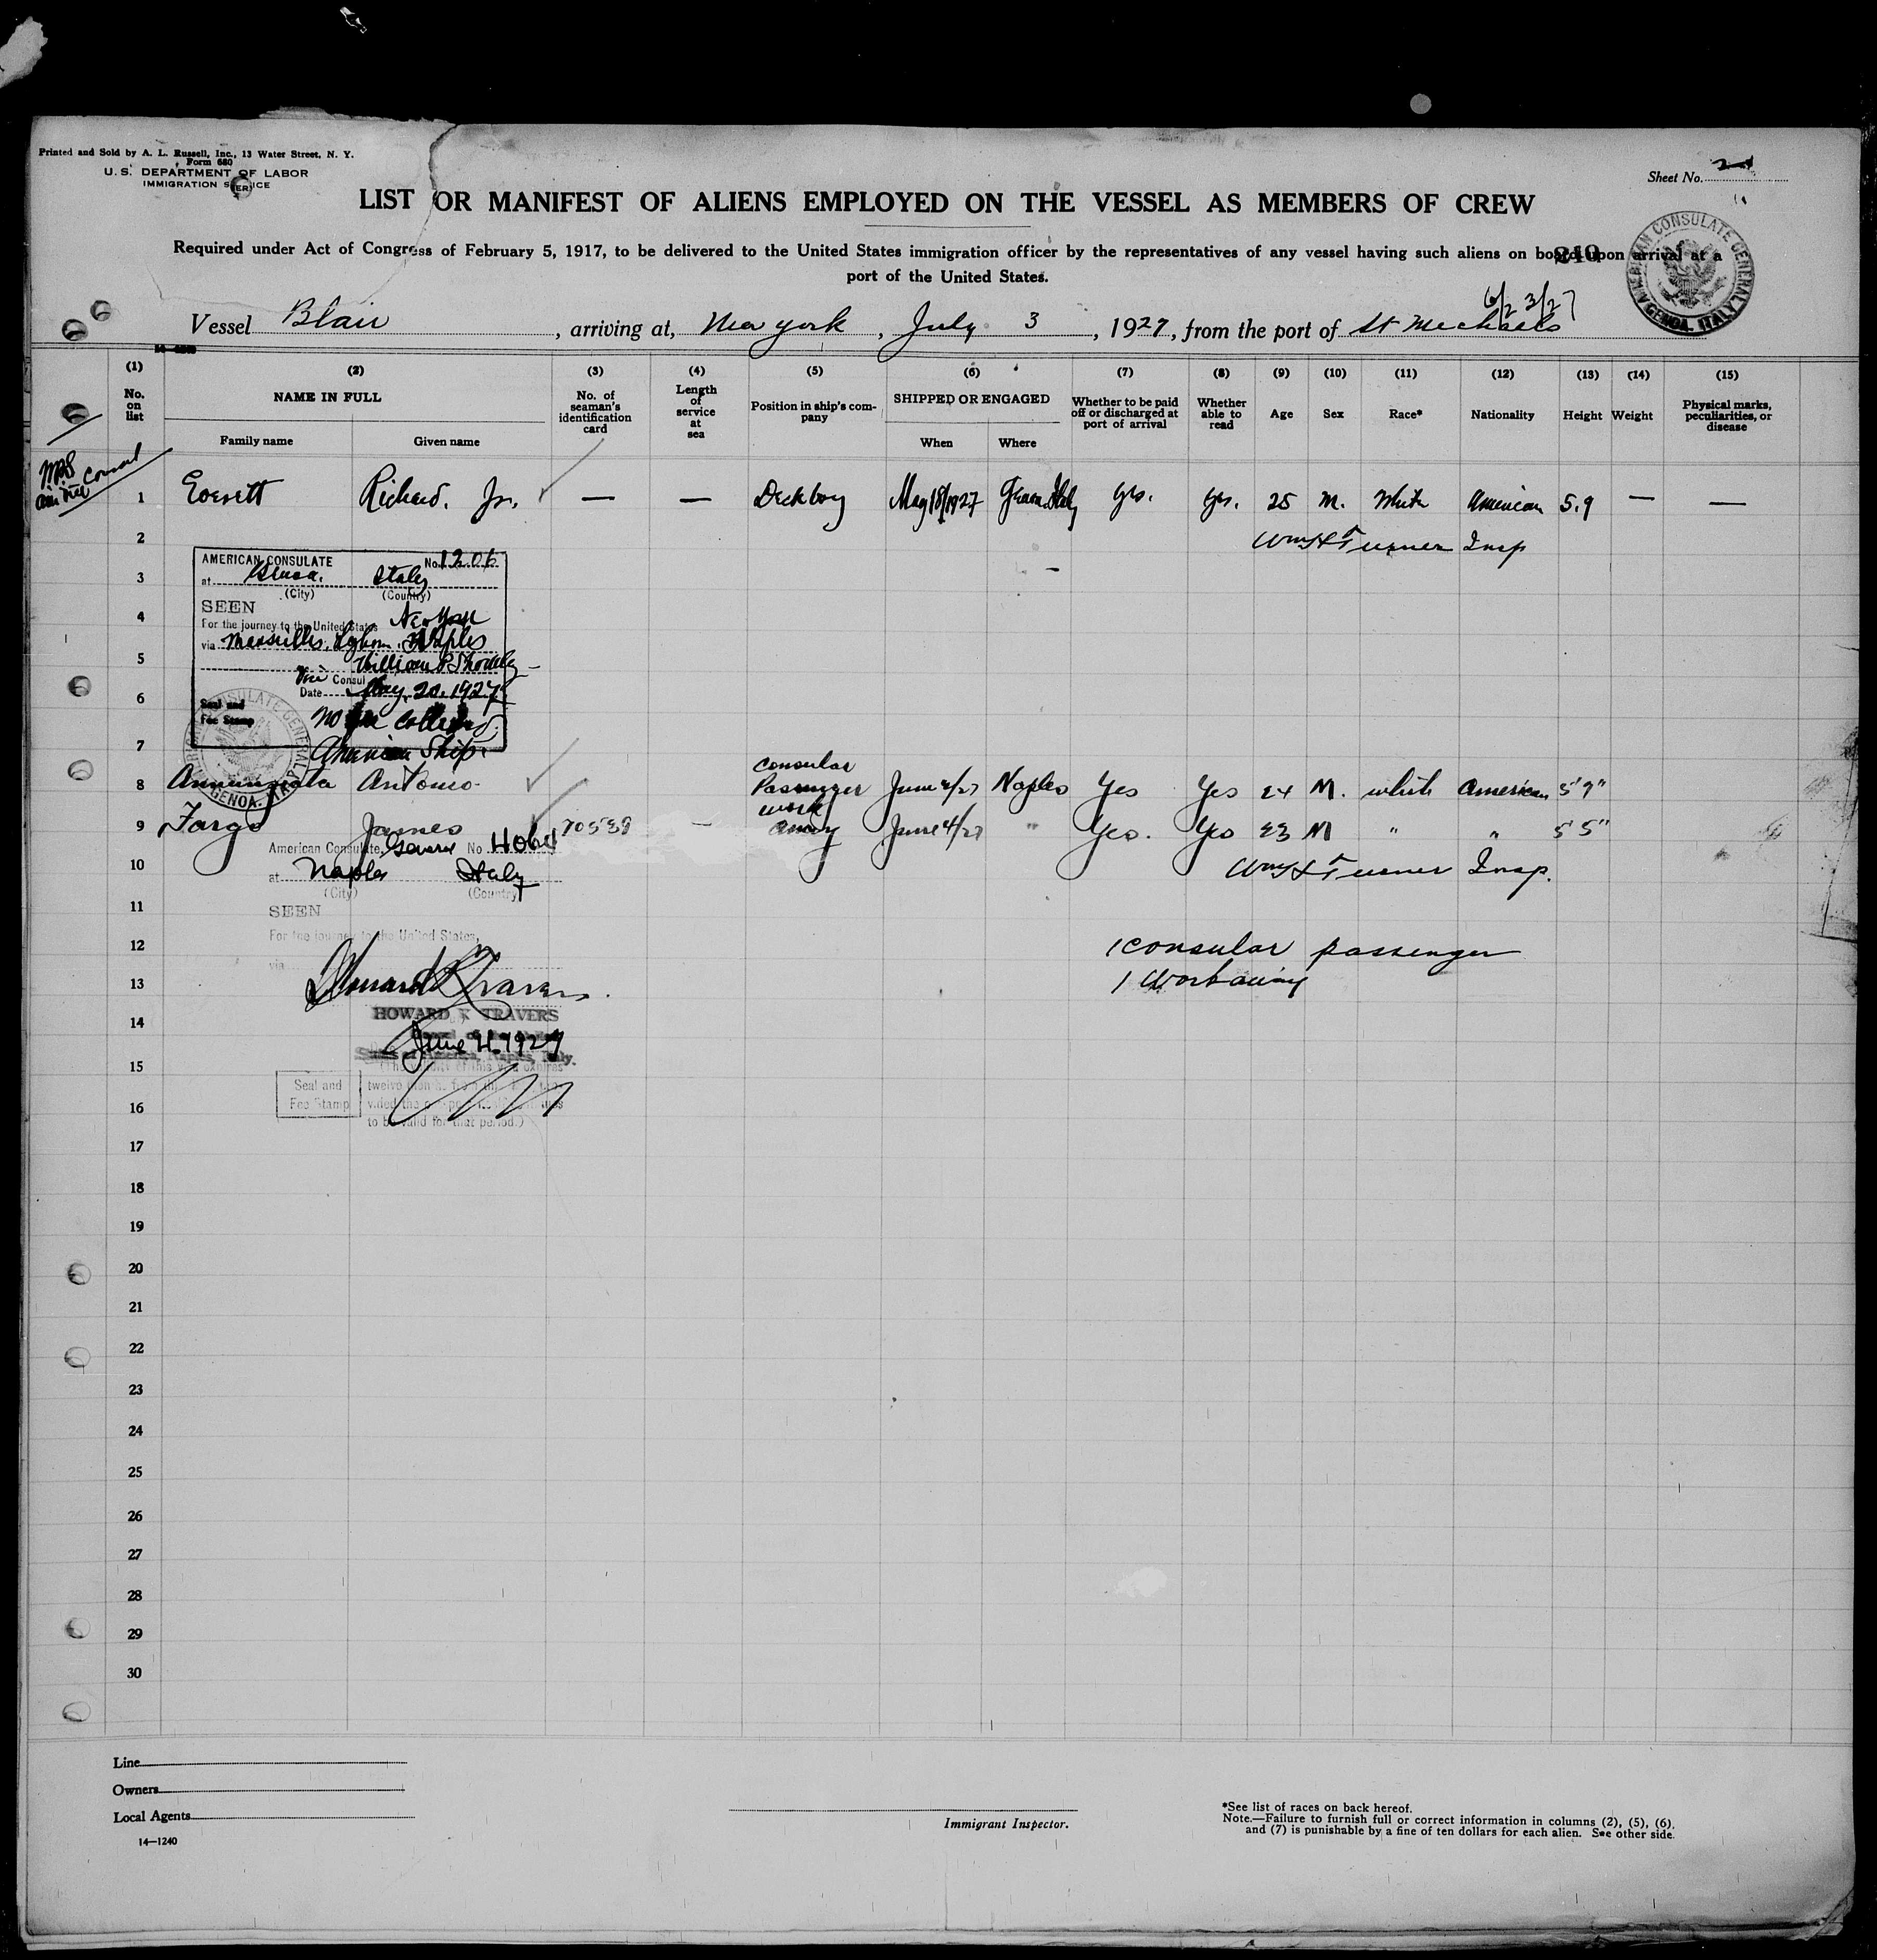 Printed and Sold by A. L. Russell, Inc., 13 Water Street, N. Y.
Form 680
U. S. DEPARTMENT OF LABOR
IMMIGRATION SERVICE
Sheet No. 2
LIST OR MANIFEST OF ALIENS EMPLOYED ON THE VESSEL AS MEMBERS OF CREW
Required under Act of Congress of February 5, 1917, to be delivered to the United States immigration officer by the representatives of any vessel having such aliens on board upon arrival at a
port of the United States.
240
AMERICAN CONSULATE GENERAL GENOA, ITALY
6/23/27
Vessel Blair, arriving at, New york, July 3, 1927, from the port of St Mechaels
(1) (2) (3) (4) (5) (6) (7) (8) (9) (10) (11) (12) (13) (14) (15)
No. on list NAME IN FULL Family name Given name No. of seaman's identification card Length of service at sea Position in ship's company SHIPPED OR ENGAGED When Where Whether to be paid off or discharged at port of arrival Whether able to read Age Sex Race* Nationality Height Weight Physical marks, peculiarities, or disease
1 Everett Richard, Jr. — — Deckboy May 18/1927 Genoa Italy yes. yes. 25 M. White American 5.9 — —
2 Wm H Turner Insp
3
4
5
6
7
AMERICAN CONSULATE No. 1206
at Genoa, Italy
(City) (Country)
SEEN
For the journey to the United States New York
via Marseilles, Leghorn, Naples
Vice Consul
Date May 20, 1927
Seal and
Fee Stamp
No fee collected
American Ship.
8 Annunziata Antonio Consular Passenger June 4/27 Naples Yes Yes 24 M. white American 5'9"
9 Fargo James 70539 — work away June 4/27 " Yes. Yes 23 M " " 5'5"
American Consulate General No. 4064
at Naples Italy
(City) (Country)
10 Wm H Turner Insp.
11
SEEN
For the journey to the United States,
via
12 1 consular passenger
13 1 workaway
HOWARD K TRAVERS
14
June 4, 1927
15
Seal and
Fee Stamp
to be valid for that period.)
16
17
18
19
20
21
22
23
24
25
26
27
28
29
30
Line
Owners
Local Agents
14—1240
Immigrant Inspector.
*See list of races on back hereof.
Note.—Failure to furnish full or correct information in columns (2), (5), (6),
and (7) is punishable by a fine of ten dollars for each alien. See other side.